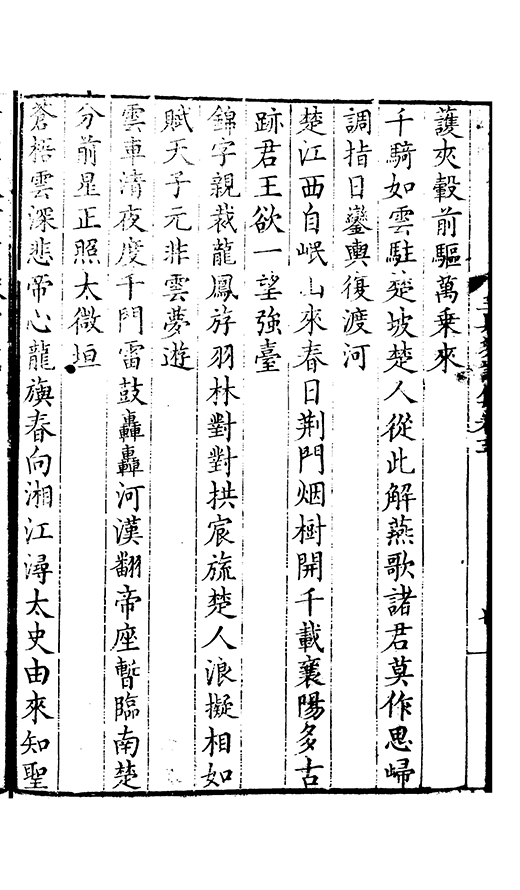 護夾轂前驅萬乗來
千騎如雲駐楚坡楚人從此解燕歌諸君莫作思歸
調指日鑾輿復渡河
楚江西自岷山來春日荆門烟樹開千載襄陽多古
跡君王欲一望強臺
錦字親裁龍鳳斿羽林對對拱宸旒楚人浪擬相如
賦天子元非雲夢遊
雲車清夜度千門雷鼓轟轟河漢翻帝座暫臨南楚
分前星正照太微垣
蒼梧雲深悲帝心龍旗春向湘江潯太史由來知聖